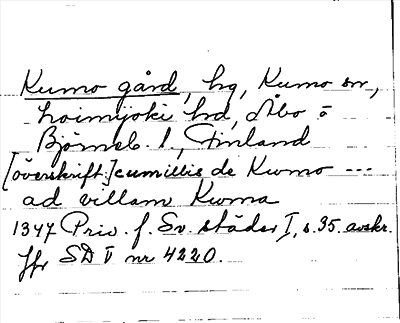 Kumo gård, hg, Kumo sn,
Loimijoki hd, Åbo o
Björneb. l., Finland
[överskrift:] cumillis de Kwmo ---
ad villam Kwma
1347 Priv. f. Sv. städer I, s. 35. avskr.
Jfr SD V nr 4220.